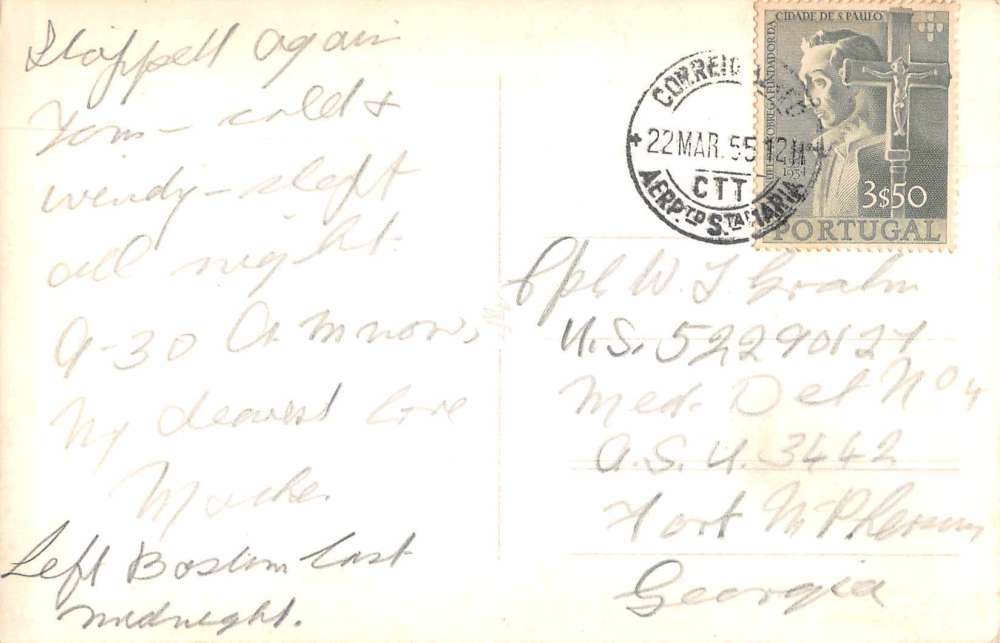 Stopped again
Tom - cold &
windy - slept
all night.
9-30 A.M now,
My dearest love
Mother
Left Boston last
midnight.
CORREIO
22 MAR. 55 12H
CTT
AERP.TO S.TA MARIA
CIDADE DE S. PAULO
NOBREGA FUNDADOR DA
1954
3$50
PORTUGAL
W. T. Graham
U.S. 52290127
Med. Det No 4
A.S.U. 3442
Fort McPherson
Georgia